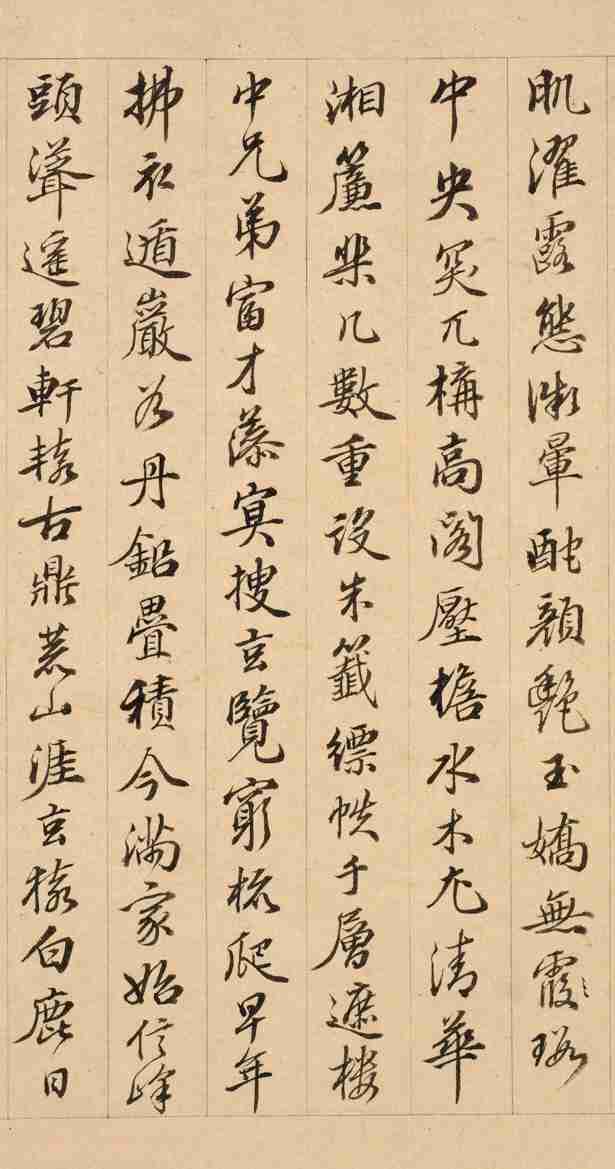 肌濯露態漵暈酡顏艷玉嬌無霞瑕
中央突兀構高閣壓檐水木尤清華
湘簾棐几數重設朱籤縹帙千層遮樓
中兄弟富才藻冥搜玄覽窮梳爬早年
拂衣遁巖谷丹鉛疊積今滿家始信峰
頭聳遙碧軒轅古鼎荒山涯玄猿白鹿日